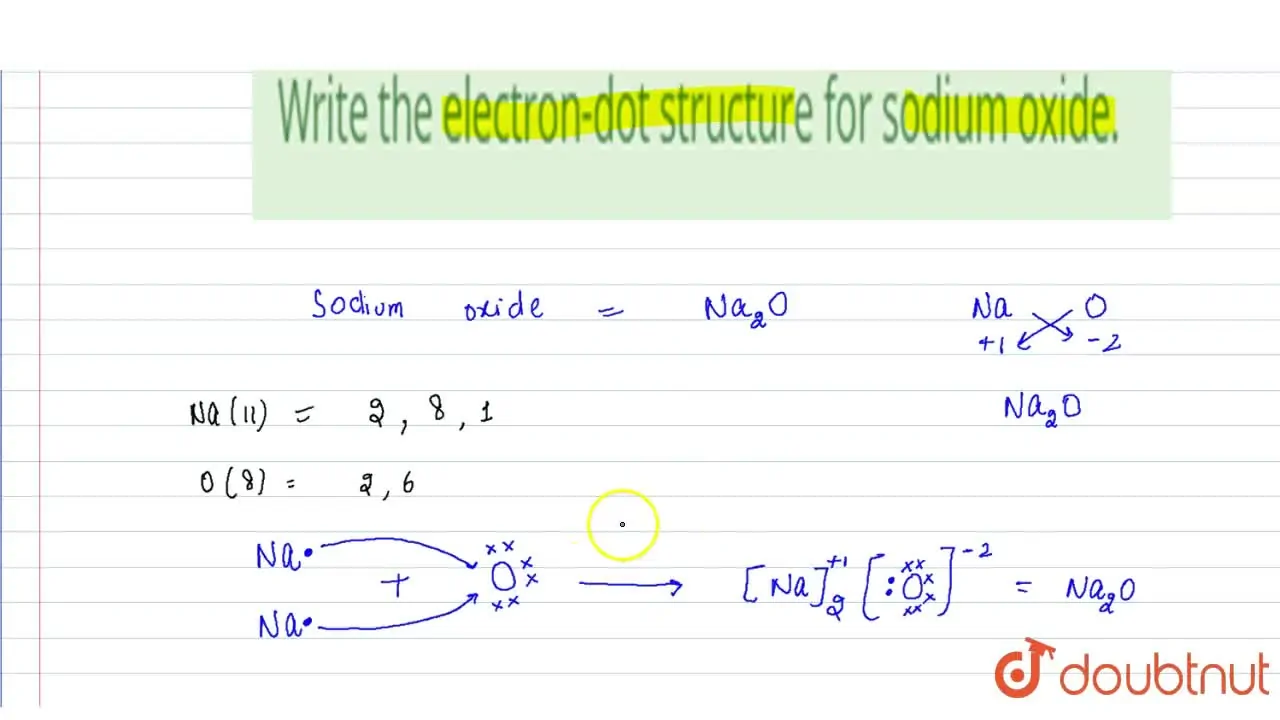 Write the electron-dot structure for sodium oxide.
Sodium oxide = Na₂O Na O
+1 -2
Na(11) = 2, 8, 1 Na₂O
O(8) = 2, 6
Na• ×× [Na]₂⁺¹ [:O]⁻² = Na₂O
+ O ×× →
Na• ××
doubtnut